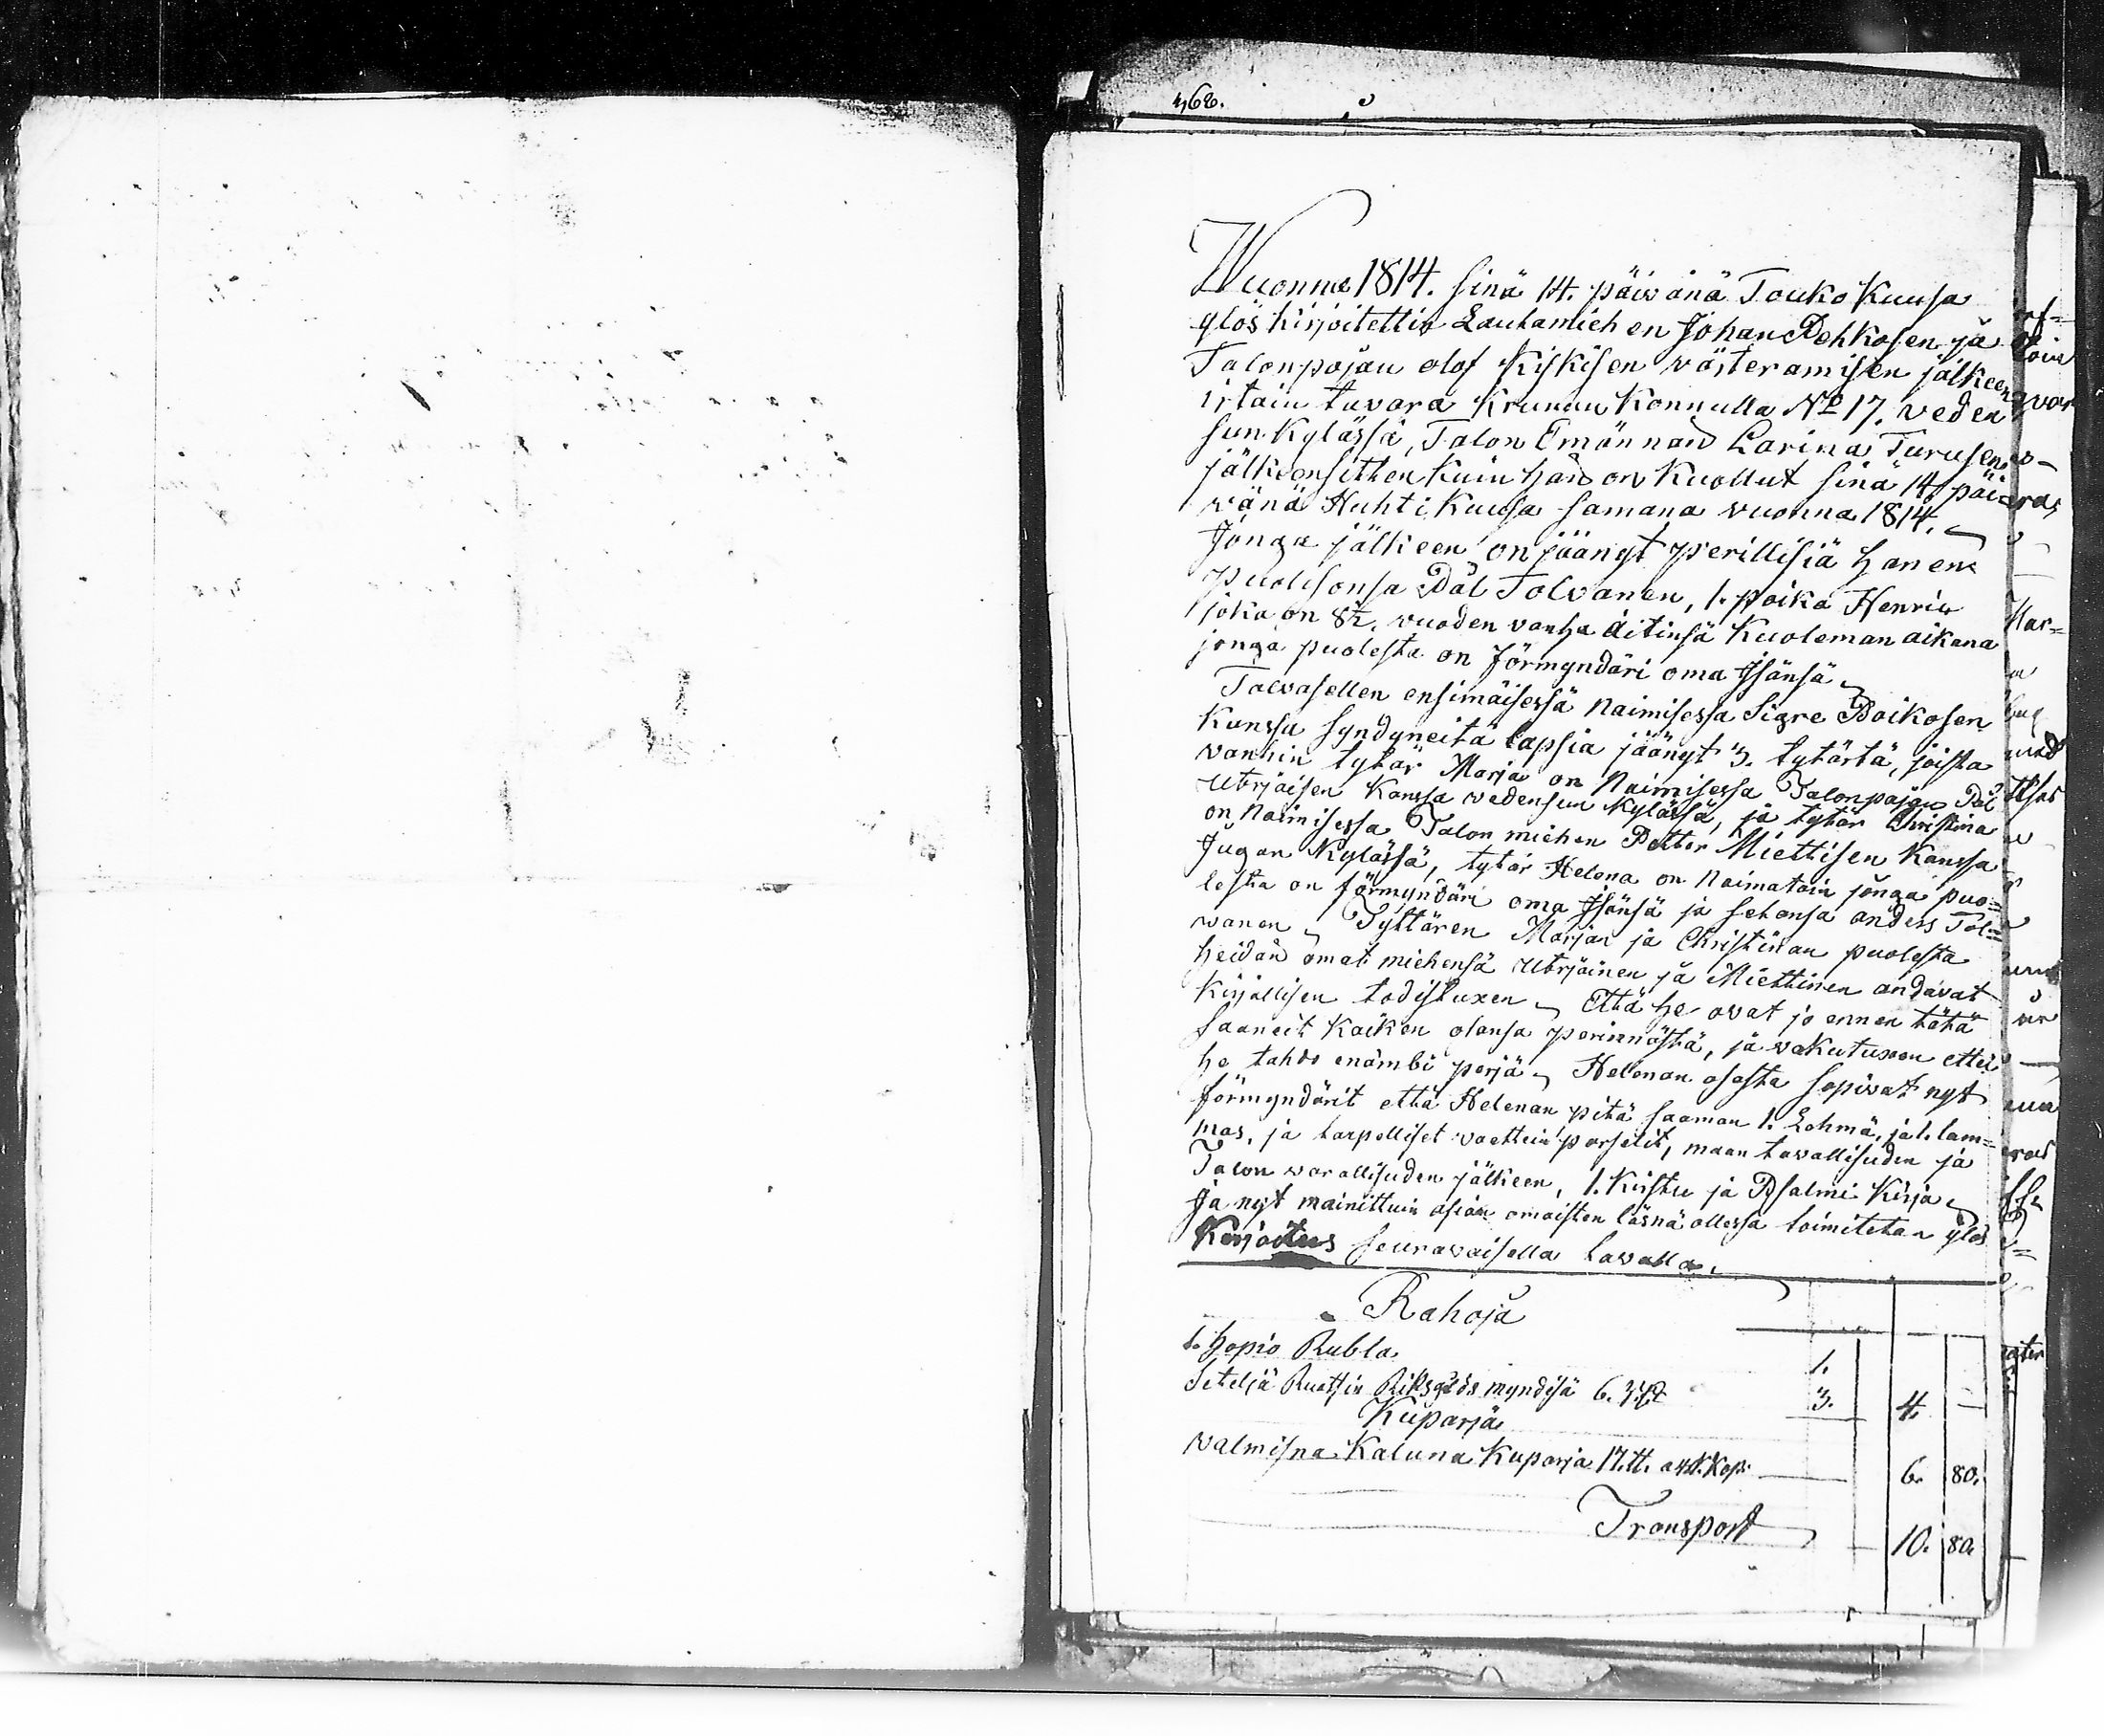 462.
Wuonna 1814. sinä 14. päiwänä Touko Kuusa
ylöskirjoitettin Lautamiehen Johan Pehkosen ja
Talonpojan Olof Kiskisen västeramisen jälkeen
irtain tavara Krunun Konnulla No 17. veden
sun Kylässä, Talon Emännän Carina Turusen
jälkeen sitten Kuin hän on Kuollut sinä 14 päi
wänä Huhti Kuusa samana vuonna 1814.
Jonga jälkeen on jäänyt perillisiä hänen
puolisonsa Pål Tolvanen, 1. poika Henric
joka on 8½. vuoden vanha äitinsä Kuoleman aikana
jonga puolesta on Förmyndäri oma Isänsä
Tolvasellen ensimäisessä Naimisessa Sigre Poikosen
Kanssa syndyneitä lapsia jäänyt 3. tytärtä, joista
vanhin tytär Marja on Naimisessa Talonpojan Pål
Utrjaisen Kanssa vedensun Kylässä, ja tytär Christina
on Naimisessa Talon miehen Petter Miettisen Kanssa
Jugan Kylässä, tytär Helena on Naimatoin jonga puo=
lesta on förmyndäri oma Isänsä ja setänsä anders Tol=
wanen Tyttären Marjan ja Christinan puolesta
heidän omat miehensä Utrjainen ja Miettinen andavat
Kirjallisen todistuxen Että he ovat jo ennen tätä
saaneit Kaiken osansa perinnöstä, ja vakutuxen ettei
he tahdo enämbi perjä Helenan osasta sopivat nyt
förmyndärit että Helenan pitä saaman 1. Lehmä, ja 1. lam=
mas, ja tarpelliset vaattein parselit, maan tavallisuden ja
Talon warallisuden jälkeen, 1. Kirstu ja Psalmi Kirja
Ja nyt mainittuin asian omaisten läsnä ollessa toimitetan ylös
Kirjoitus seuravaisella tavalla.
Rahoja
1. hopio Rubla 1.
Seteljä Ruottin Riksgälds myndisä 6. 3. 4. —
Kuparja
valmisna Kaluna Kuparja 17. tt. a 40. Kop. 6. 80.
Transport 10. 80.